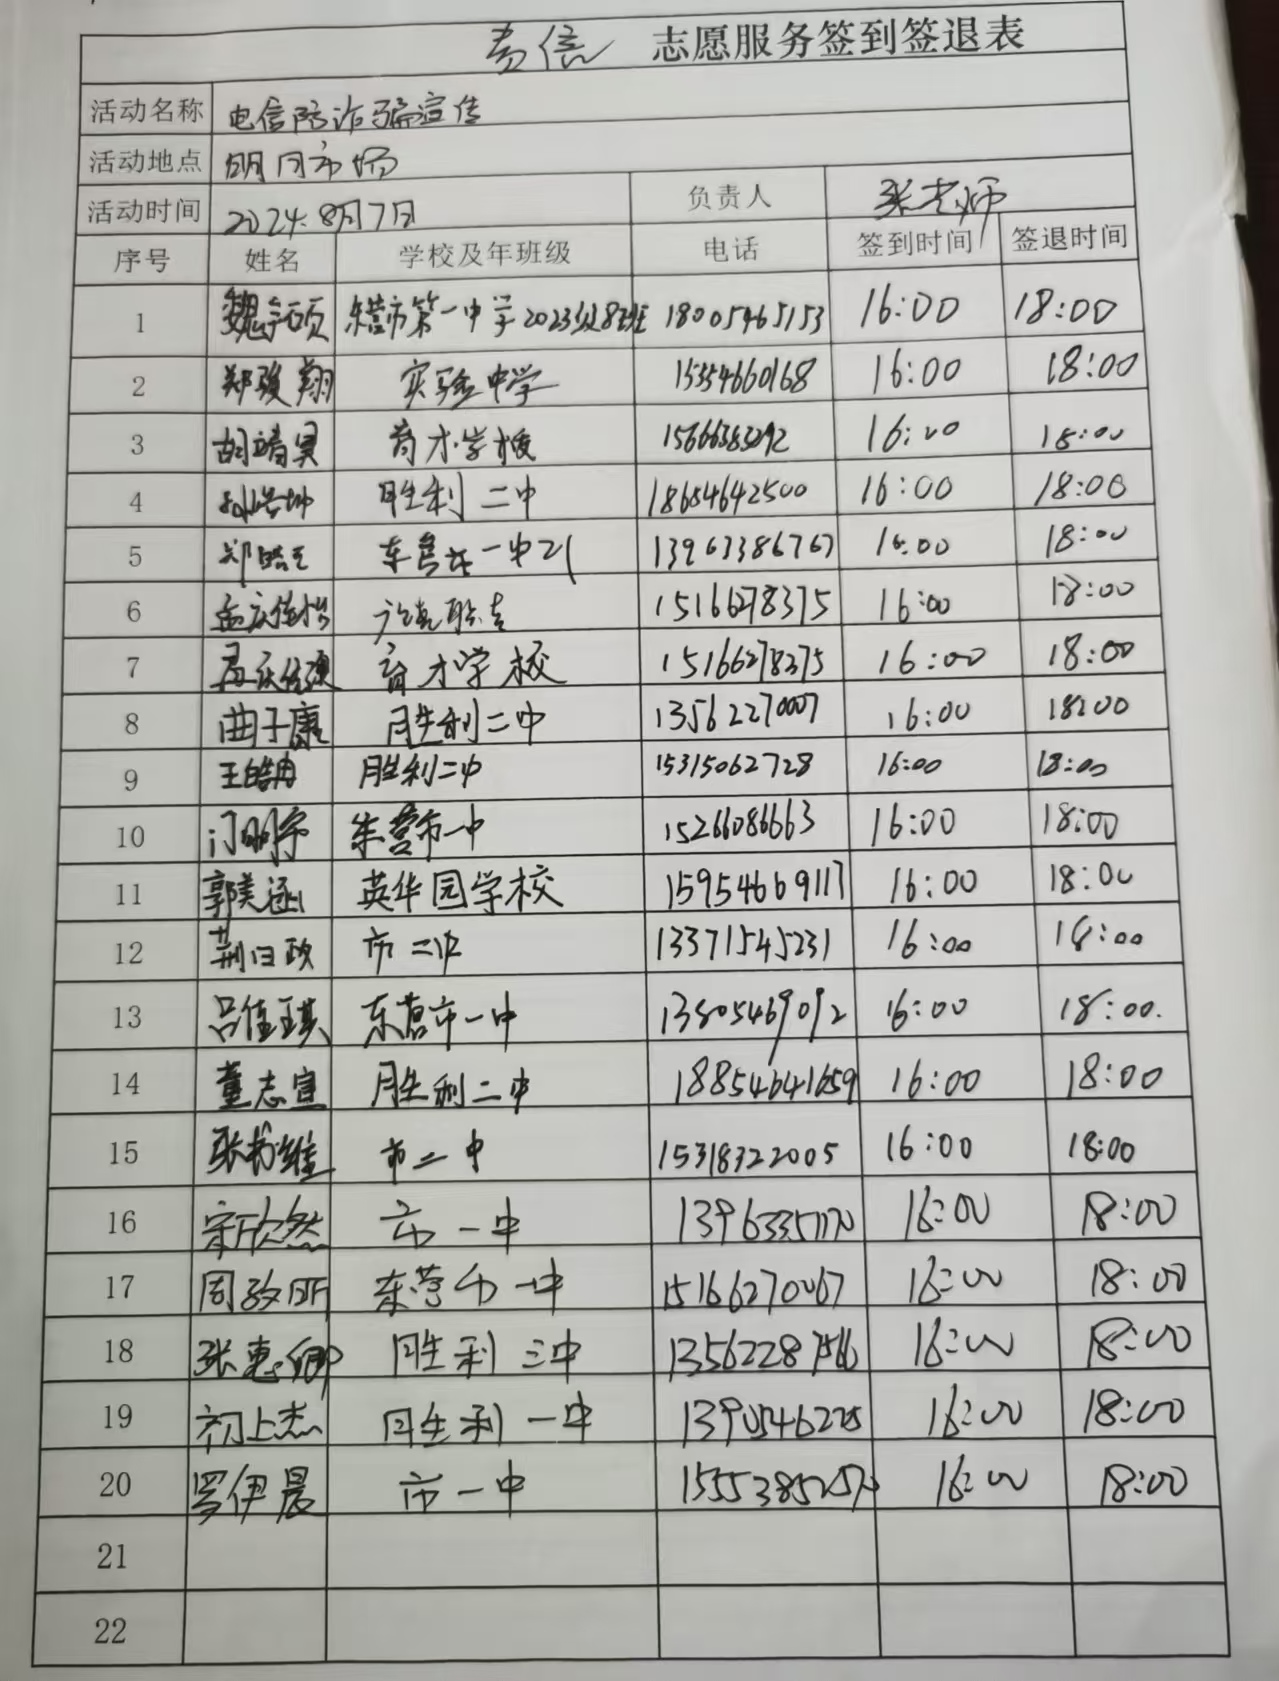 志愿服务签到签退表
活动名称 电信防诈骗宣传
活动地点 明月市场
活动时间 2024.8月7日 负责人 张老师
序号 姓名 学校及年班级 电话 签到时间 签退时间
1 东营市第一中学2023级8班 18005465153 16:00 18:00
2 郑骏翔 实验中学 15354660168 16:00 18:00
3 胡靖昊 育才学校 16:00 18:00
4 胜利二中 18684642500 16:00 18:00
5 13963386767 16:00 18:00
6 15166278375 16:00 18:00
7 育才学校 15166278375 16:00 18:00
8 曲子康 胜利二中 13562270007 16:00 18:00
9 王皓冉 胜利二中 15315062728 16:00 18:00
10 门明宇 东营市一中 15266086663 16:00 18:00
11 郭美涵 英华园学校 15954669117 16:00 18:00
12 荆曰政 市二中 13371545231 16:00 18:00
13 吕佳琪 东营市一中 13805469092 16:00 18:00.
14 董志宣 胜利二中 18854641659 16:00 18:00
15 市二中 15318322005 16:00 18:00
16 宋欣然 市一中 16:00 18:00
17 周致昕 东营市一中 15166270067 16:00 18:00
18 张惠卿 胜利三中 16:00 18:00
19 初上杰 胜利一中 16:00 18:00
20 罗伊晨 市一中 16:00 18:00
21
22